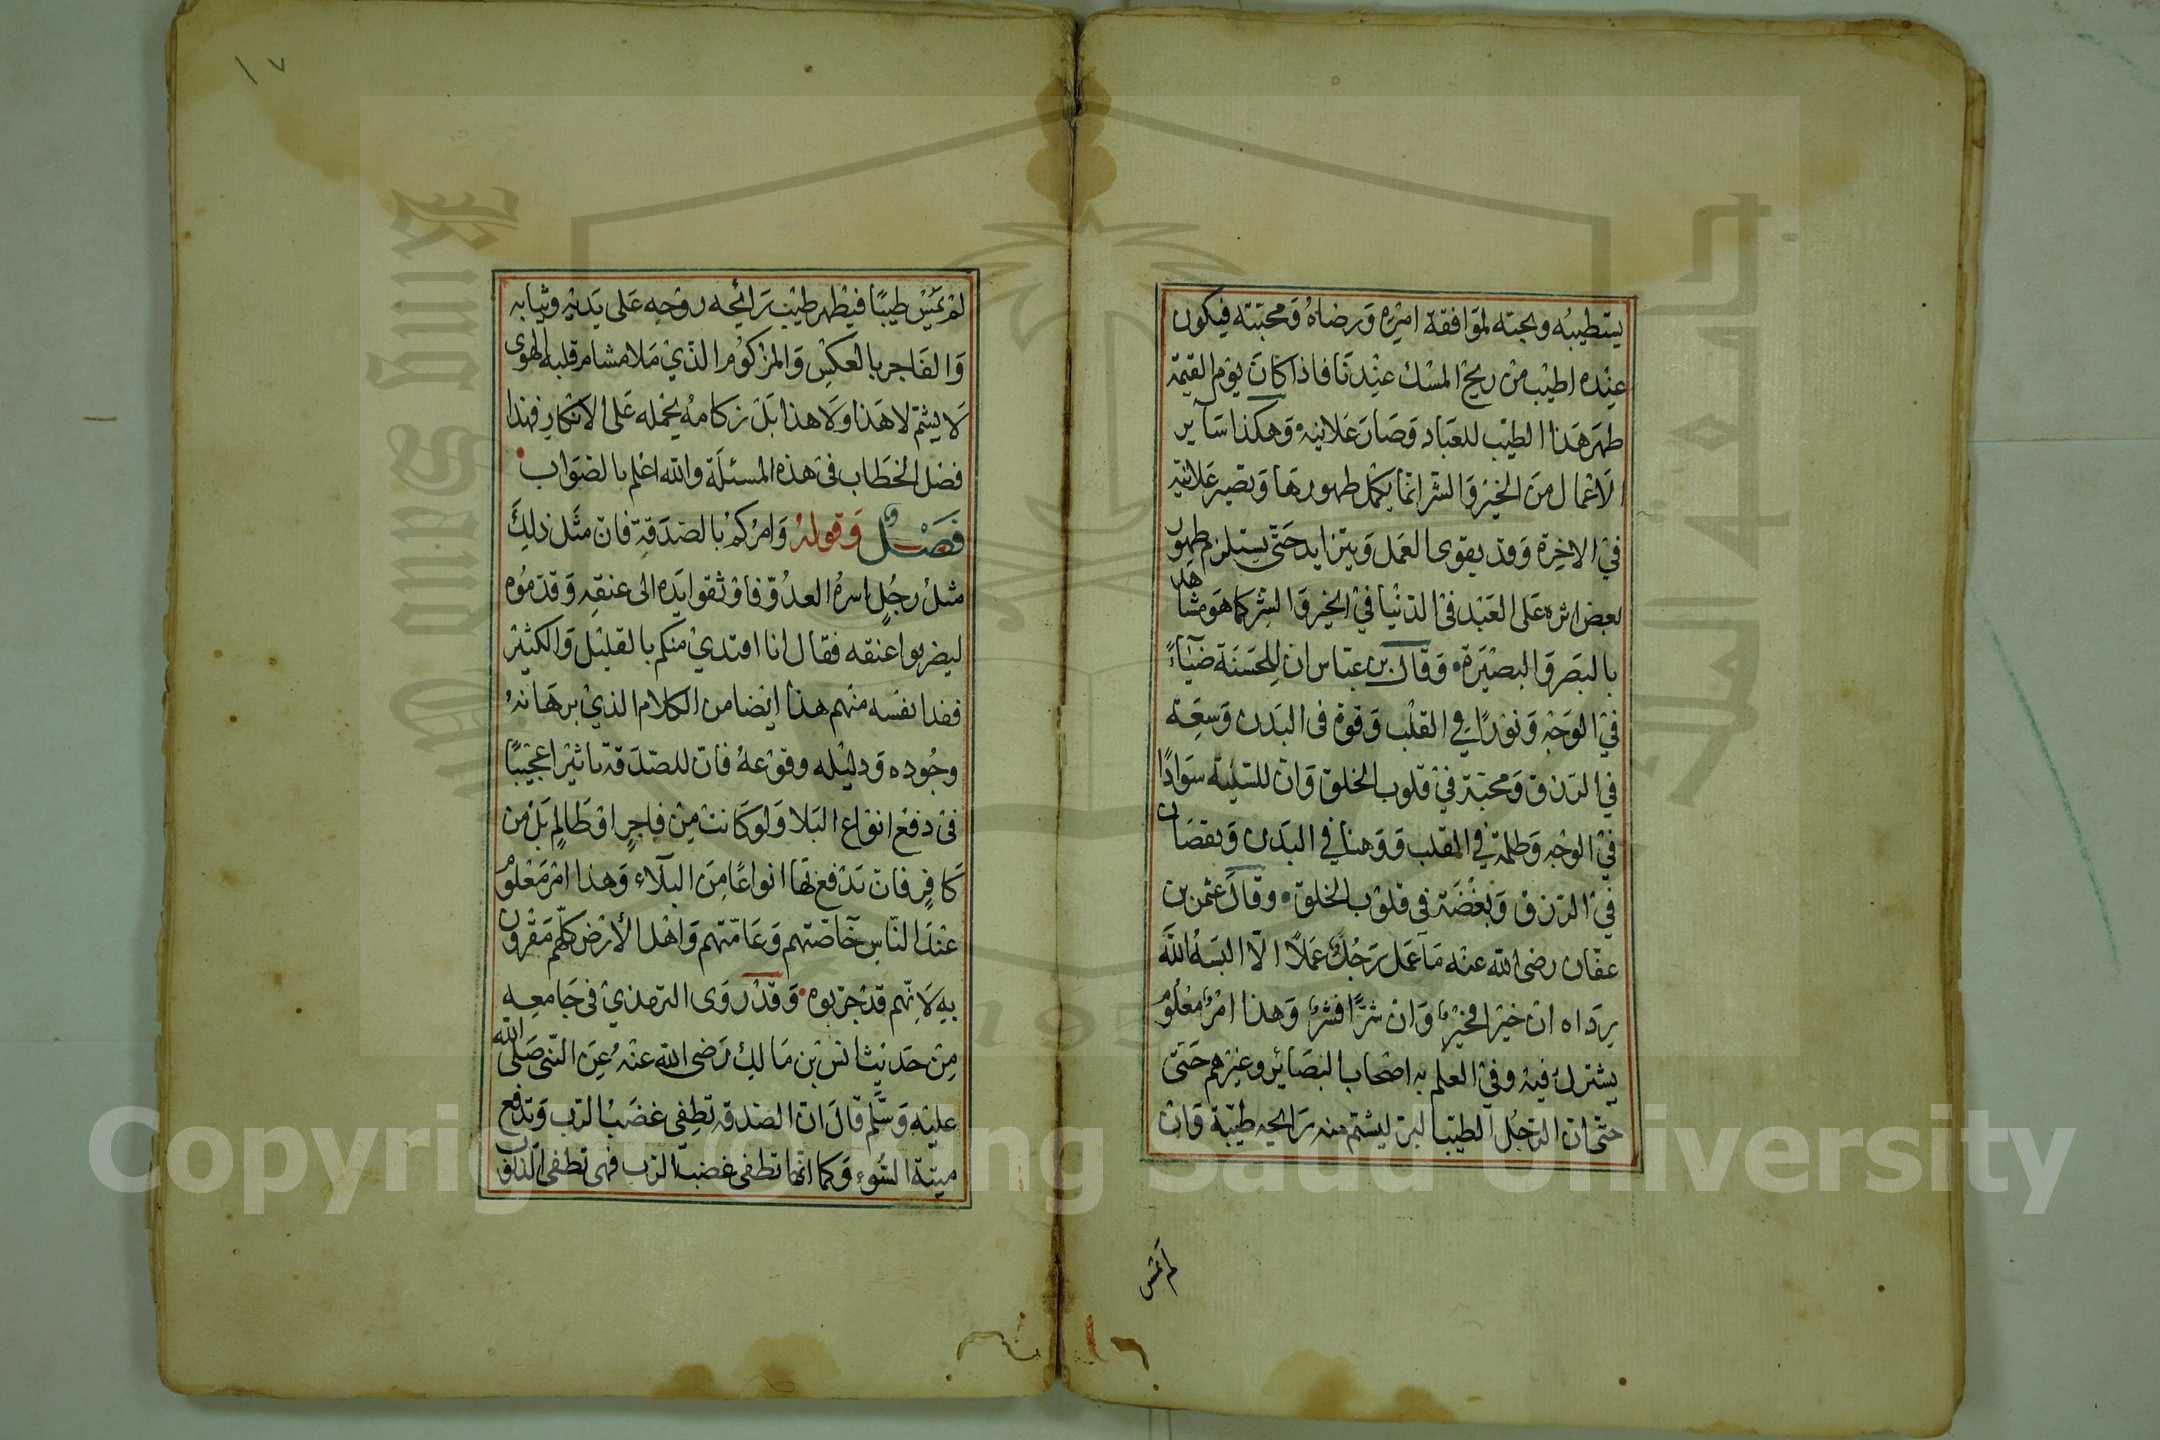 يستطيبه ويحبه لموافقة امره وَرضاهُ وَمحبته فيكون
عِنْده اطيْب مِنْ ريح المسْك عِنْدنَا فاذا كانَ يَوْم القيٰمة
ظهَر هَذا الطيّب للعبَاد وَصَارَ عَلانيَة وَهكذا سَآير
الاعْمال منَ الخيْر وَالشر انما يكمل ظهورهَا وَيصير عَلانيَة
في الاخِرَة وَقد يقوى العَمل وَيتزايد حَتّى يستلزم ظهُور
بعض اثره عَلى العَبْد فى الدّنْيا في الخير وَالشرّ كما هوَ مشاهد
بالبَصَر وَالبصيْرَة وَقال بن عبّاس ان لِلحَسَنَة ضيَآءً
في الوَجْه وَنورًا في القلْب وَقوة فى البَدن وَسعَة
في الرّزق وَمحبّة في قلوب الخلق وَان للسّيئة سَوادًا
في الوجْه وَظلمة في القلب وَوَهنا في البَدن وَنقصَان
في الرّزق وَبُغضَة فى قلوب الخلق وقال عثمن بن
عفّان رضى الله عنه مَا عَمل رَجُلٌ عَمَلًا الّا البَسَهُ اللّه
رِدَاه ان خيْرا فخيْرٌ وَان شرًّا فشرٌ وَهذا امْرٌ معْلُومٌ
يشترك فيه وفي العلم به اصْحاب البَصَائر وغيْرهم حَتى
حتّى ان الرّجُل الطيّب البرّ ليشتم منه رَائحه طيّبة وَان
لم يمس
١٦
١٧
لمْ يمَسّ طيبًا فيظهر طيْب رَائحه روْحِه عَلى بَدنه وثيابه
وَالفَاجر بالعكْس وَالمزكوُم الذيْ مَلا مشام قلبه الهوى
لَا يشتمّ لا هَذا وَلَا هذا بَلْ زكامهُ يحْمله عَلى الانكار فهذا
فصْل الخطَاب فى هذه المسئلَة والله اعْلم بالصَواب
فَصْلٌ وَقولهُ وَامرُكمْ بالصَدَقة فان مثَل ذلِكَ
مثلُ رجُلٍ اسرهُ العدُوّ فاوْثقوا يَده الى عنقِه وَقدّموُه
ليضربوا عنقه فقال انا افتديْ منكم بالقليْل وَالكثيْر
ففدا نفسَه منهم هذا ايضا من الكلام الذيْ برهَانهُ
وجُوده وَدليْله وقوْعهُ فان للصّدَقة تاثيْرا عجيْبًا
فى دفع انوَاع البَلا وَلوكَانت مِنْ فاجِرٍ اوْ ظَالمٍ بَلْ مِن
كافِرٍ فان يدْفع بهَا انواعًا مِنَ البَلآء وَهذا امْر مَعْلُومٌ
عنْدَ النّاس خَآصّتهم وَعَامّتهم وَاهْل الأرْض كلّهم مَقْرون
به لَانّهم قدْ جرّبوه وَقدْ رَوَى الترمذيْ فى جَامعِه
مِنْ حَديْث انسْ بْن مَالك رَضى الله عنْهُ عَن النّبى صَلى الله
عليْه وَسَلّم قالَ ان الصَدقة تطفى غضَبُ الرّب وَتدفع
ميتة السُوءِ وَكما انّها تطفى غضبَ الرّب فهى تطفى الذنوب
Copyright © King Saud University
King Saud University
جامعة الملك سعود